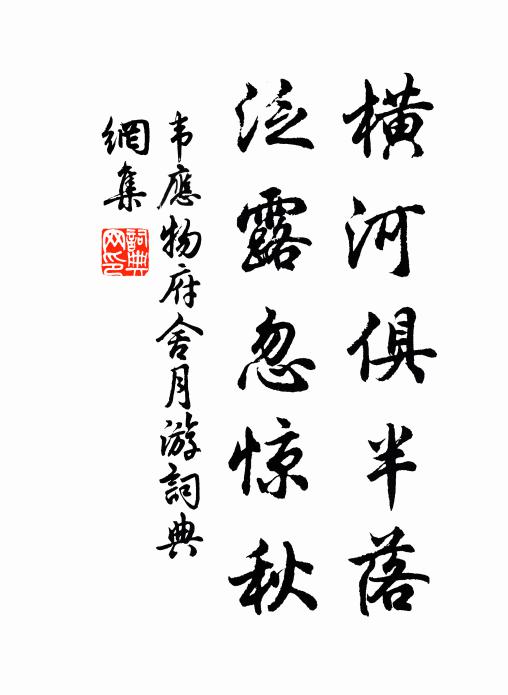 橫河俱半落
泛露忽惊秋
韦應物府舍月游詞典
網集
詞典
网印